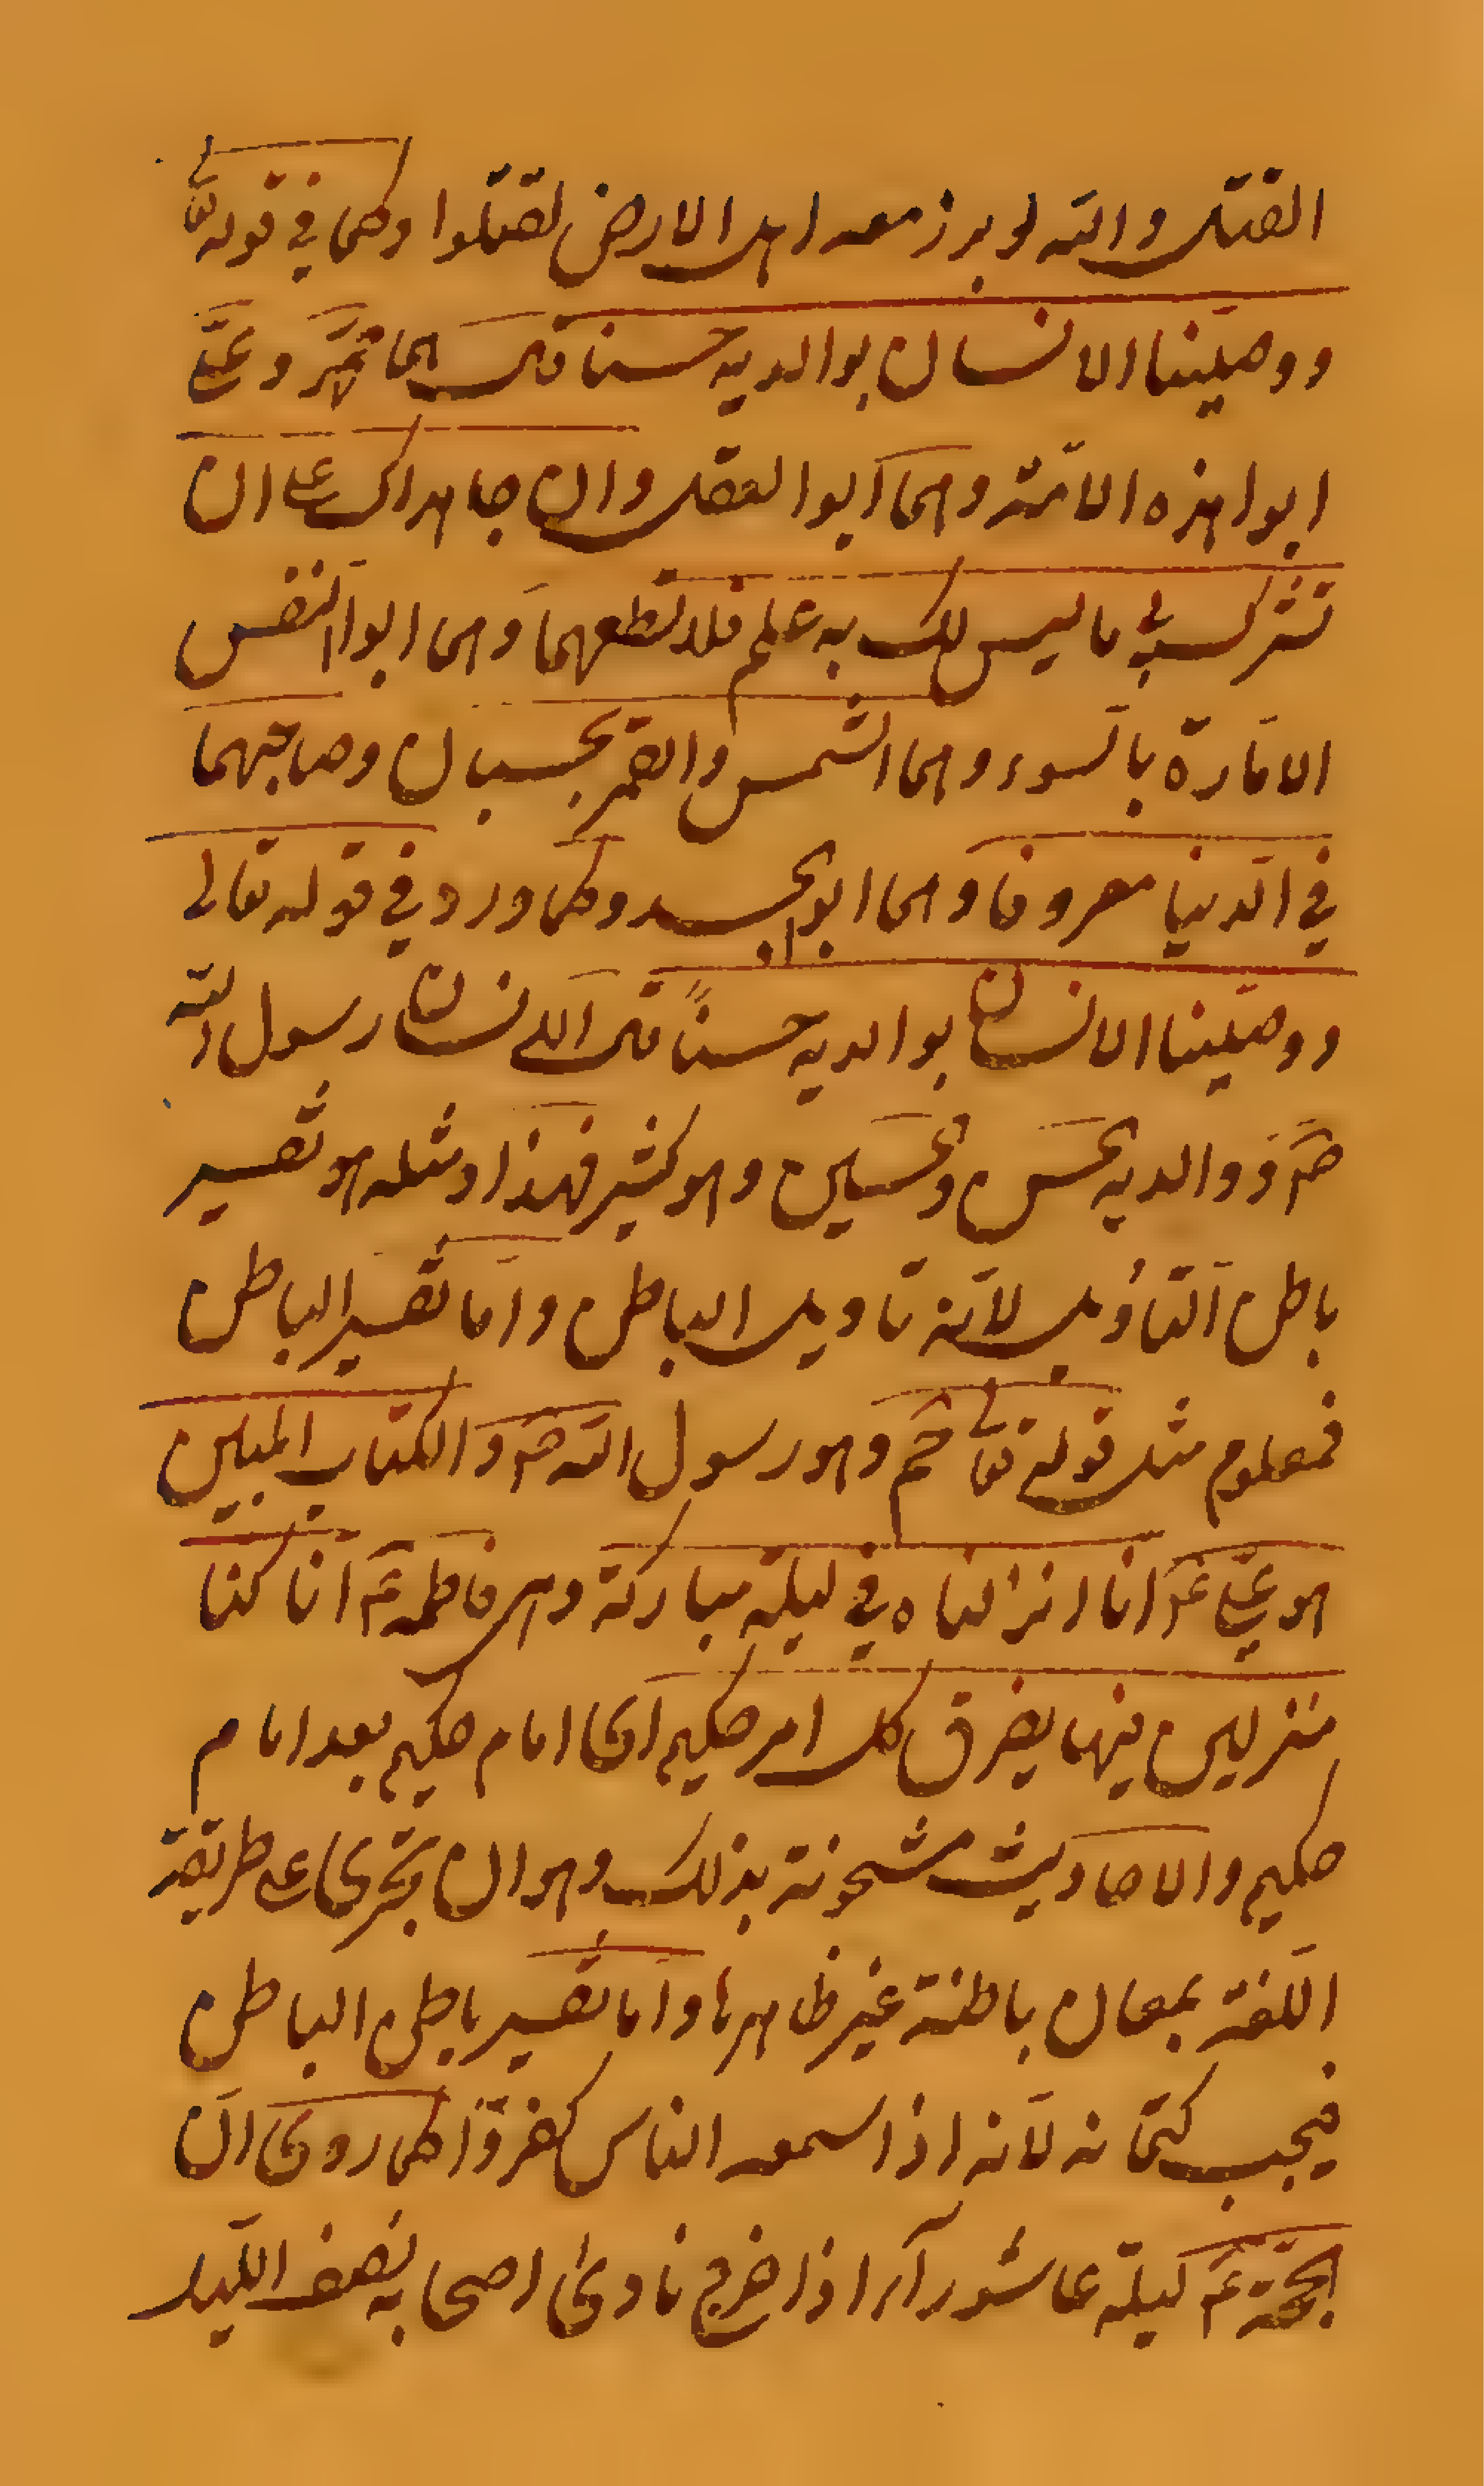 القتل والله لو برز معه اهل الارض لقتلوا وكما في قوله تع
ووصّينا الانسان بوالديه حسنا قال هما محمّد وعليّ
ابوا هذه الامّة وهما ابوا العقل وان جاهداك على ان
تشرك بي ما ليس لك به علم فلا تطعهما وهما ابوا النفس
الامّارة بالسّوء وهما الشمس والقمر بحسبان وصاحبهما
في الدّنيا معروفا وهما ابوا الجسد وكما ورد في قوله تعالى
ووصّينا الانسان بوالديه حسنًا قال الانسان رسول الله
صم ووالديه الحسن والحسين وهو كثير فهذا ومثله هو تفسير
باطن التّأويل لانّه تاويل الباطن وامّا تفسير الباطن
فمعلوم مثل قوله تعالى حم وهو رسول الله صم والكتاب المبين
هو عليّ عم انا انزلناه في ليلة مباركة وهي فاطمة عم انّا كنا
منزلين فيها يفرق كل امر حكيم اى امام حكيم بعد امام
حكيم والاحاديث مشحونة بذلك وهو ان تجرى على طريقة
اللّغة بمعان باطنة غير ظاهرها وامّا تفسير باطن الباطن
فيجب كتمانه لانّه اذا سمعه الناس كفروا كما روى انّ
الحجّة عم ليلة عاشوراء اذا خرج نادى اصحابه نصف اللّيل